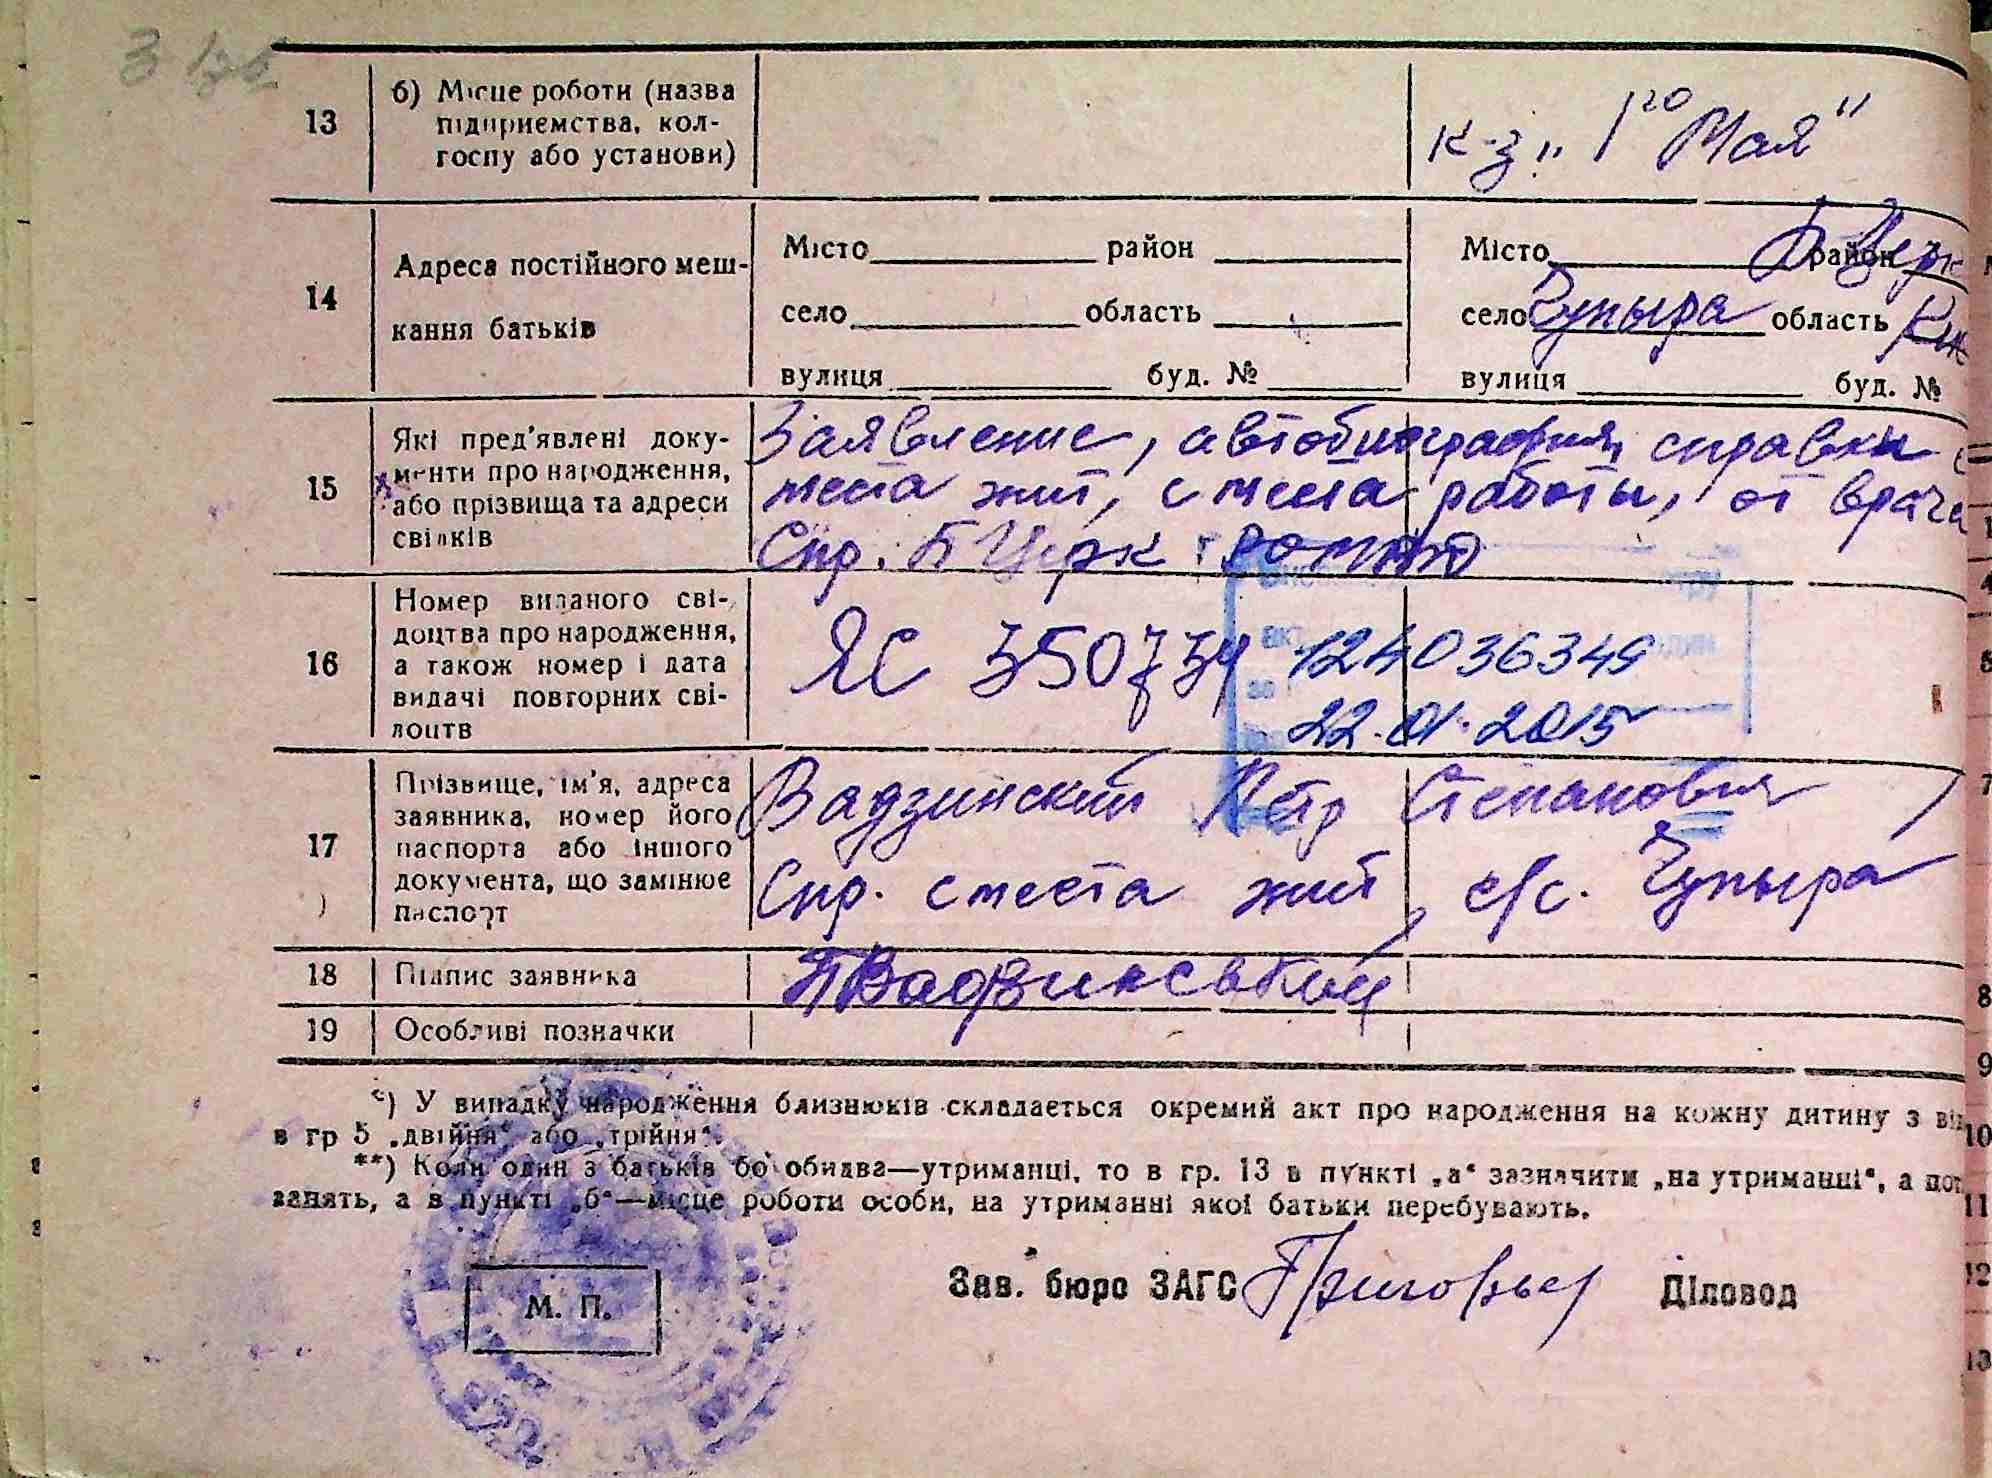 13
б) Місце роботи (назва
підприємства, кол-
госпу або установи)
к-з „1го Мая"
14
Адреса постійного меш-
кання батьків
Місто район
село область
вулиця буд. №
Місто район Б Церк
село Чупыра область
вулиця буд. №
15
Які пред'явлені доку-
менти про народження,
або прізвища та адреси
свідків
Заявление, автобиография, справки с
места жит, с места работы, от врача
Спр. Б Церк
16
Номер виданого сві-
доцтва про народження,
а також номер і дата
видачі повторних сві-
доцтв
ЯС 350734
124036349
22.01.2015
17
Прізвище, ім'я, адреса
заявника, номер його
паспорта або іншого
документа, що замінює
паспорт
Вадзинский Петр Степанович
Спр. с места жит, с/с. Чупыра
18
Підпис заявника
19
Особливі позначки
*) У випадку народження близнюків складається окремий акт про народження на кожну дитину з
в гр 5 „двійня" або „трійня".
**) Коли один з батьків бо обидва—утриманці, то в гр. 13 в пункті „а" зазначити „на утриманні", а
занять, а в пункті „б"—місце роботи особи, на утриманні якої батьки перебувають.
М. П.
Зав. бюро ЗАГС Діловод
7
8
9
10
11
12
13